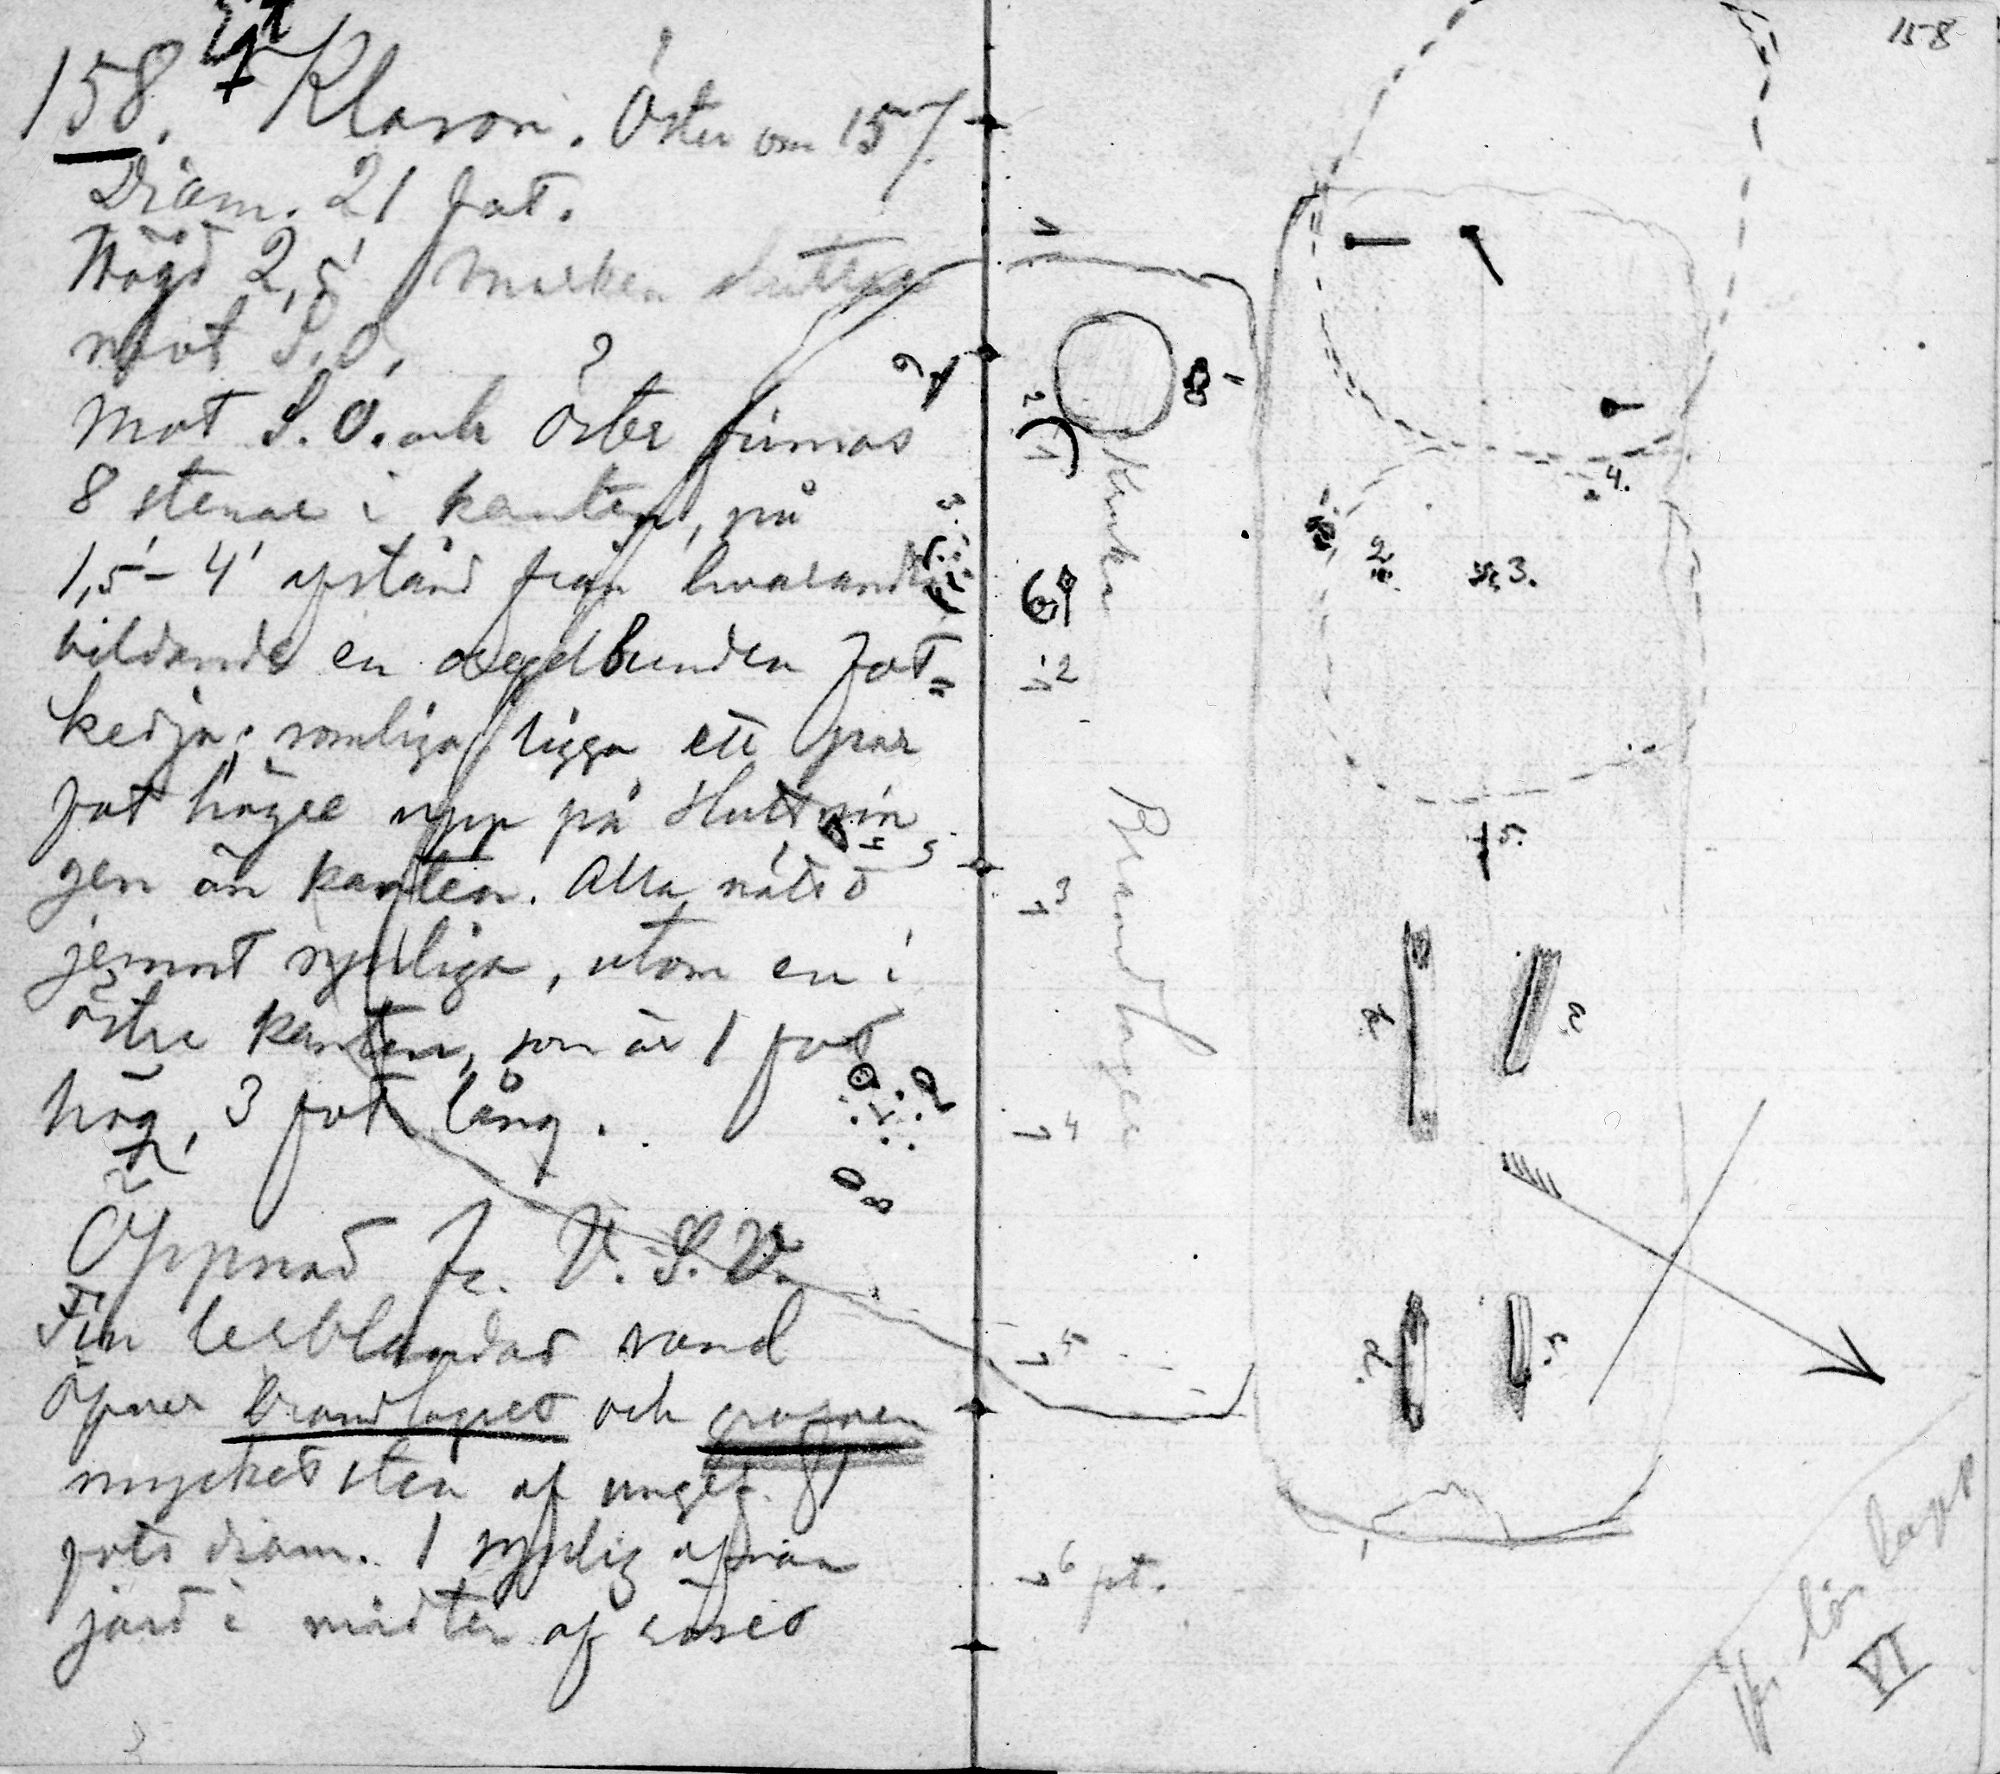 158. Klason. Öster om 157.
Diam. 21 fot.
Högd 2,5' Marken sluttar
mot S.O.
Mot S.O. och Öster finnas
8 stenar i kanten, på
1,5'- 4' afstånd från hvarandra
bildande en oregelbunden fot=
kedja; somliga ligga ett par
fot högre upp på sluttnin
gen än kanten. Alla nätt o
jemnt synliga, utom en i
östre kanten, som är 1 fot
hög, 3 fot lång.
Öppnad fr. V.S.V.
Fin lerblandad sand
öfver brandlagret och grafven
mycket sten af ungef. 1
fots diam. 1 synlig ofvan
jord i midten af röset
158
1
2
3
5
6
8
1
2
Kruka
2
3
Brandlager
4
5
6 pt.
1.
2.
3.
4.
5.
VI